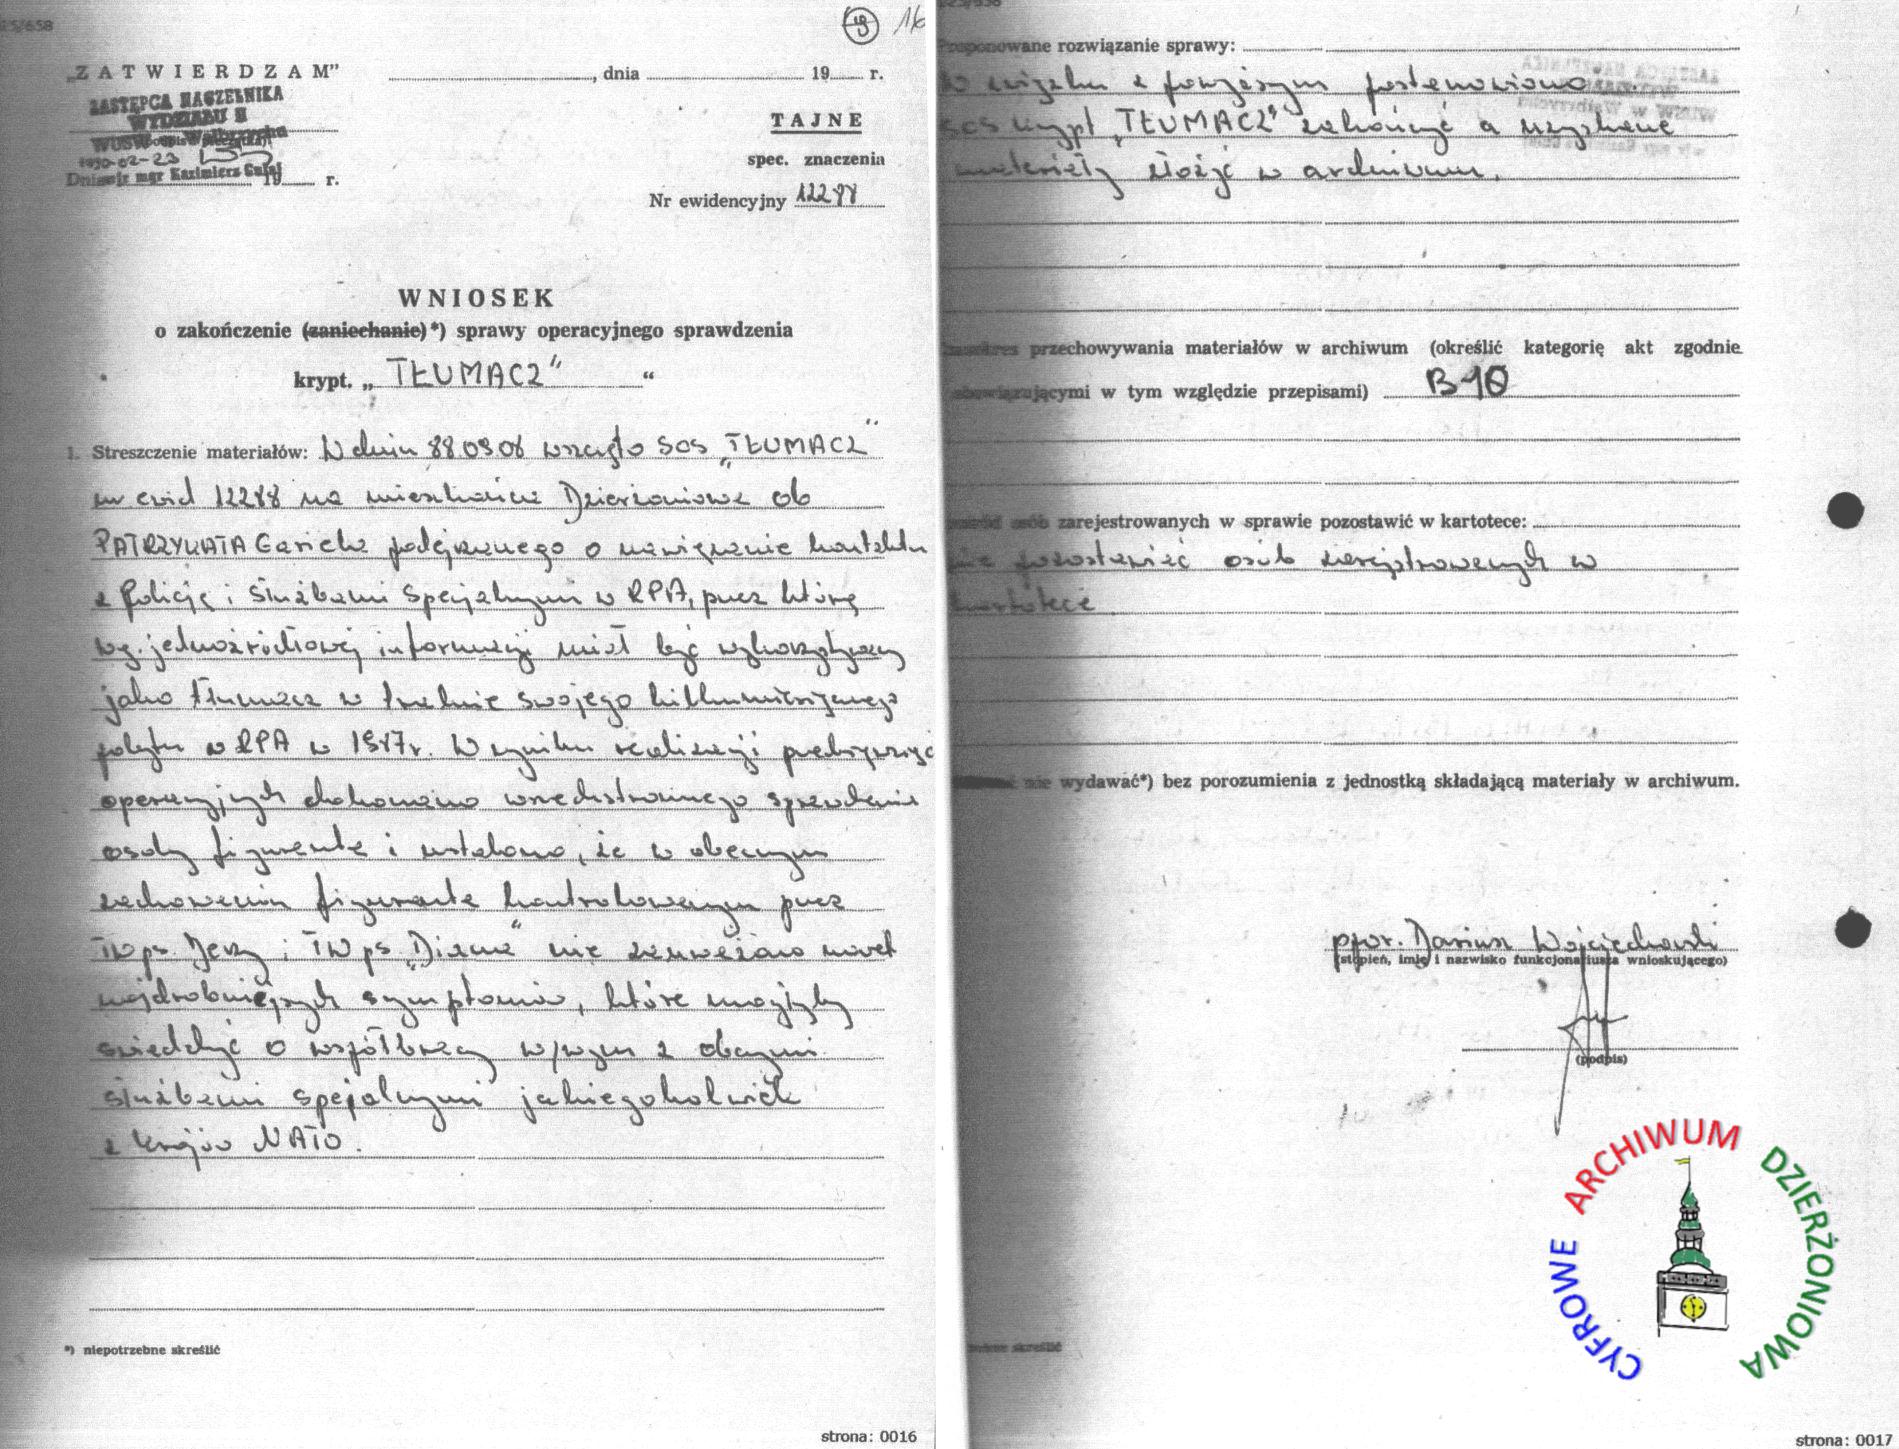 25/658
19 16
„ZATWIERDZAM”
ZASTĘPCA NACZELNIKA
WYDZIAŁU II
WUSW w Wałbrzychu
1990-02-23
Dnia mgr Kazimierz 19 r.
, dnia 19 r.
TAJNE
spec. znaczenia
Nr ewidencyjny 12288
WNIOSEK
o zakończenie (zaniechanie)*) sprawy operacyjnego sprawdzenia
krypt. „ TŁUMACZ” “
1. Streszczenie materiałów: W dniu 88.09.08 wszczęto SOS „TŁUMACZ”
nr ewid 12288 na mieszkańca Dzierżoniowa ob
PATRZYKATA podejrzanego o nawiązanie kontaktu
z Policją i Służbami Specjalnymi w RPA, przez którą
wg. jednoźródłowej informacji miał być wykorzystywany
jako tłumacz w trakcie swojego kilkumiesięcznego
pobytu w RPA w 1987r. W wyniku realizacji przedsięwzięć
operacyjnych dokonano wszechstronnego sprawdzenia
osoby figuranta i ustalono, że w obecnym
zachowaniu figuranta kontrolowanym przez
TW ps. Jerzy i TW ps „Diana” nie zauważono nawet
najdrobniejszych symptomów, które mogłyby
świadczyć o współpracy w/wym z obcymi
służbami specjalnymi jakiegokolwiek
z krajów NATO.
*) niepotrzebne skreślić
strona: 0016
Proponowane rozwiązanie sprawy:
W związku z powyższym postanowiono
SOS krypt „TŁUMACZ” zakończyć a uzyskane
materiały złożyć w archiwum.
przechowywania materiałów w archiwum (określić kategorię akt zgodnie
obowiązującymi w tym względzie przepisami) B-10
osób zarejestrowanych w sprawie pozostawić w kartotece:
nie pozostawiać osób zarejestrowanych w
kartotece
nie wydawać*) bez porozumienia z jednostką składającą materiały w archiwum.
ppor. Dariusz Wojciechowski
(stopień, imię i nazwisko funkcjonariusza wnioskującego)
(podpis)
skreślić
CYFROWE ARCHIWUM DZIERŻONIOWA
strona: 0017